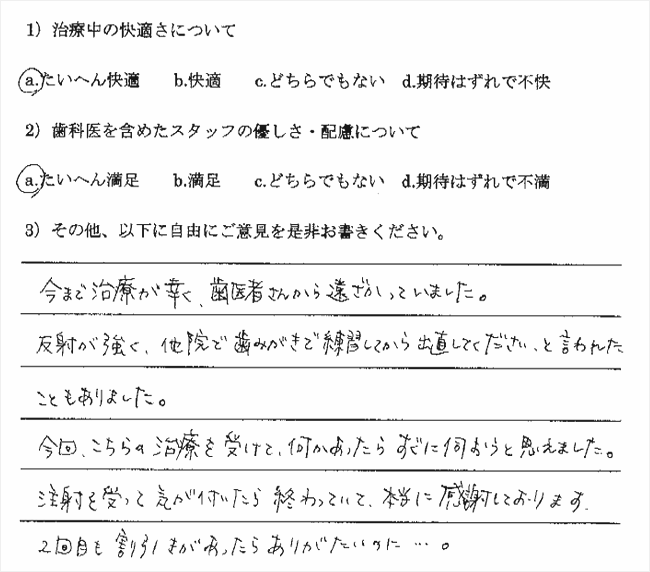 1）治療中の快適さについて
a.たいへん快適　b.快適　c.どちらでもない　d.期待はずれで不快
2）歯科医を含めたスタッフの優しさ・配慮について
a.たいへん満足　b.満足　c.どちらでもない　d.期待はずれで不満
3）その他、以下に自由にご意見を是非お書きください。
今まで治療が辛く、歯医者さんから遠ざかっていました。
反射が強く、他院で歯みがきで練習してから出直してください、と言われた
こともありました。
今回、こちらの治療を受けて、何かあったらすぐに伺おうと思えました。
注射を受って気が付いたら終わっていて、本当に感謝しております。
2回目も割引きがあったらありがたいのに…。